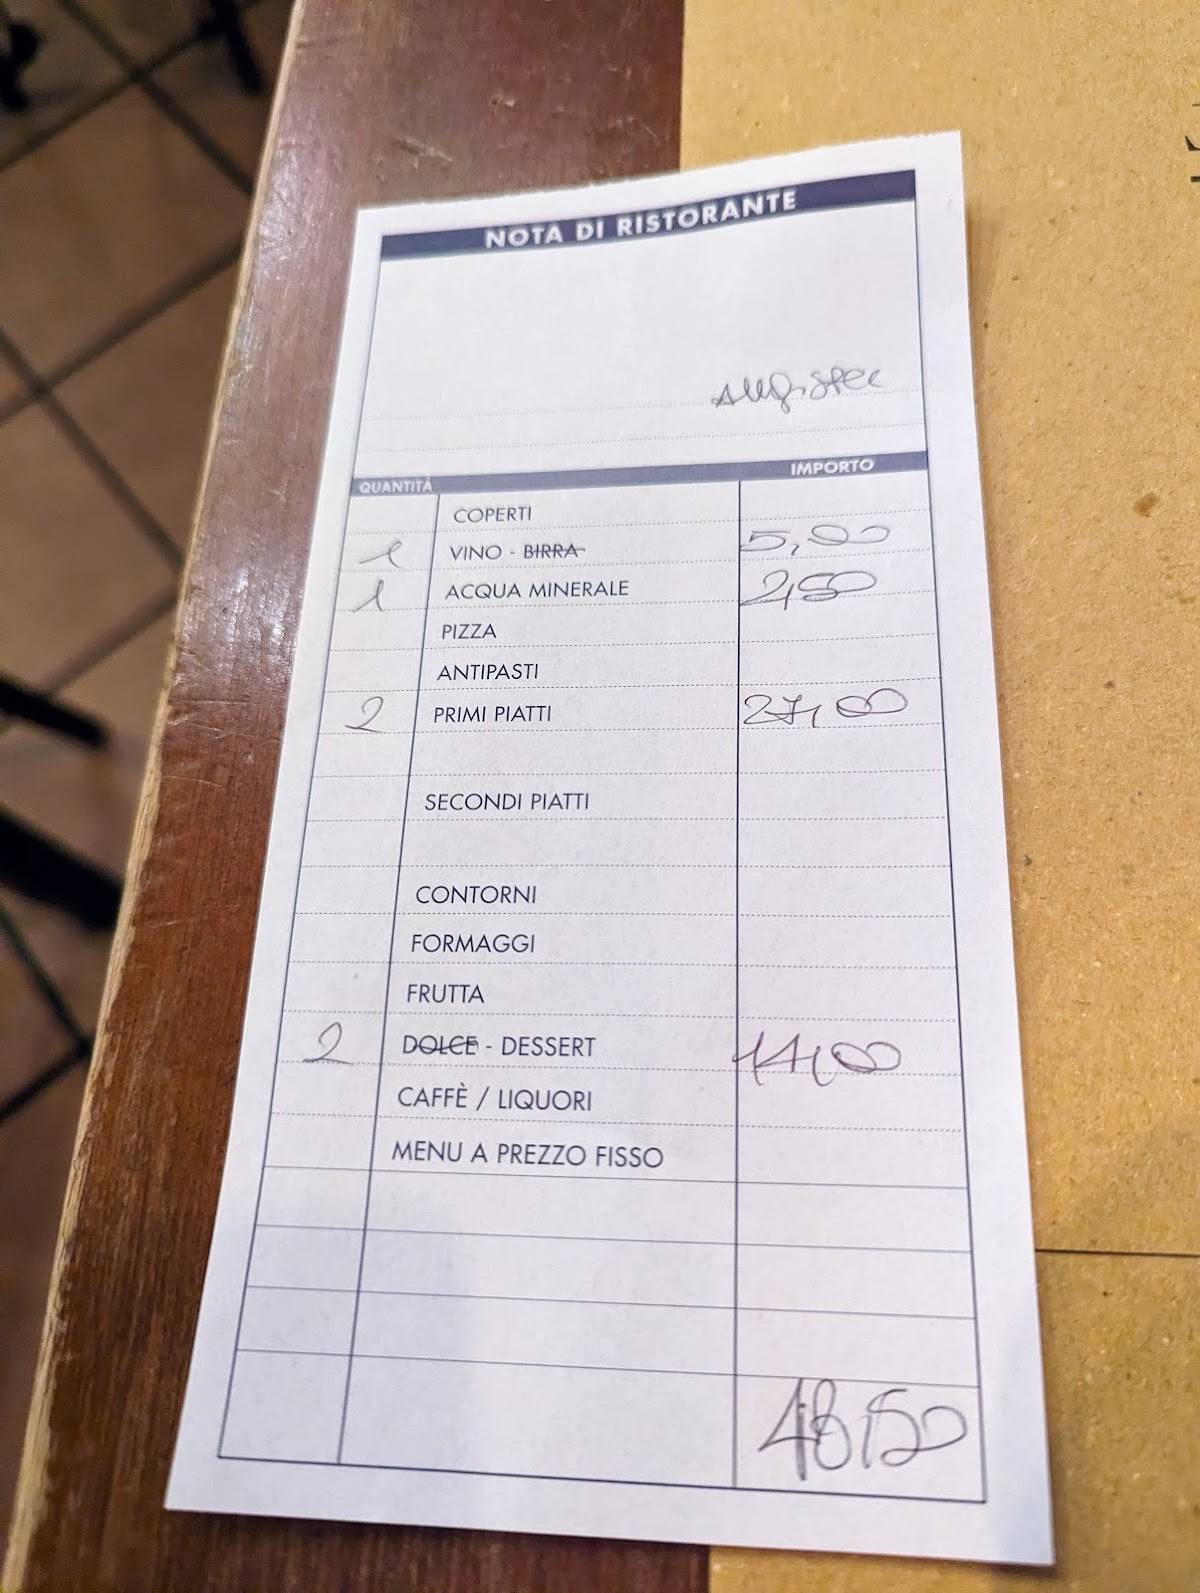 NOTA DI RISTORANTE
QUANTITÀ IMPORTO
COPERTI
1 VINO - BIRRA 5,00
1 ACQUA MINERALE 2,50
PIZZA
ANTIPASTI
2 PRIMI PIATTI 27,00
SECONDI PIATTI
CONTORNI
FORMAGGI
FRUTTA
2 DOLCE - DESSERT 14,00
CAFFÈ / LIQUORI
MENU A PREZZO FISSO
48,50